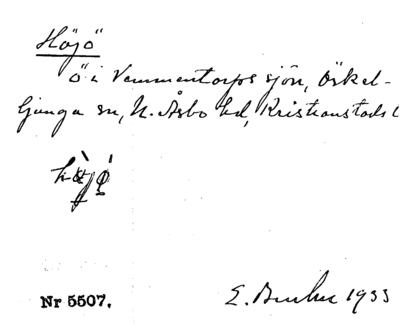 Höjö
ö i Vemmentorps sjön, Örkel-
ljunga sn, N. Åsbo hd, Kristianstads l
Nr 5507.
E. 1933